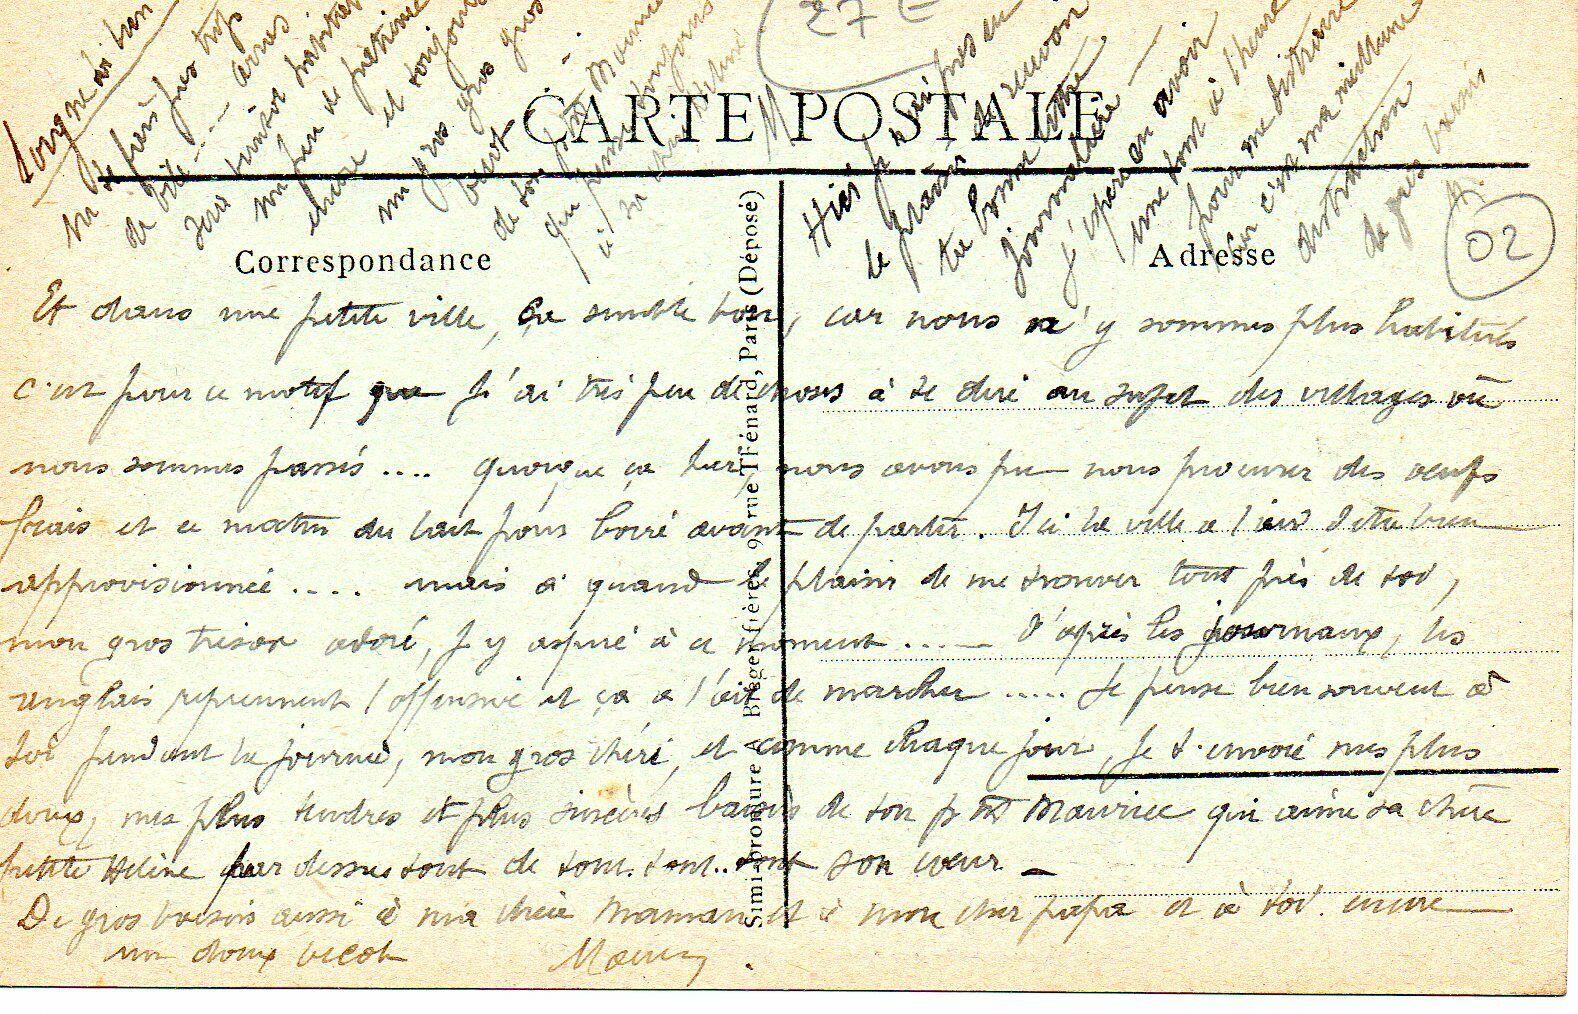 27 E
CARTE POSTALE
Soigne toi bien
ne te fais pas trop
de bile.....
un peu de
encore et toujours
un gros gros gros
bécot.
de ton Maurice
qui pense toujours
à sa chère Hélène
M
Hier je n'ai pas eu
le plaisir de recevoir
ta bonne lettre
journalière
j'espère en avoir
une tout à l'heure
pour me distraire
car c'est ma meilleure
distraction
de gros baisers
M.
02
Correspondance
Adresse
Simi-bromure A. Breger frères, 9, rue Thénard, Paris (Déposé)
Et dans une petite ville, ça semble bon, car nous n'y sommes plus habitués
c'est pour ce motif que j'ai très peu de choses à te dire au sujet des villages où
nous sommes passés .... quoique ça hier, nous avons pu nous procurer des oeufs
frais et ce matin du lait pour boire avant de partir. Ici la ville a l'air d'être bien
approvisionnée .... mais à quand le plaisir de me trouver tout près de toi,
mon gros trésor adoré, j'y aspire à ce moment ..... D'après les journaux, les
anglais reprennent l'offensive et ça a l'air de marcher ..... Je pense bien souvent à
toi pendant la journée, mon gros chéri, et comme chaque jour, je t'envoie mes plus
doux, mes plus tendres et plus sincères baisers de ton ptit Maurice qui aime sa chère
petite Hélène par dessus tout de tout.tout..tout son coeur _
De gros baisers aussi à ma chère maman et à mon cher papa et à toi encore
un doux bécot Maurice.